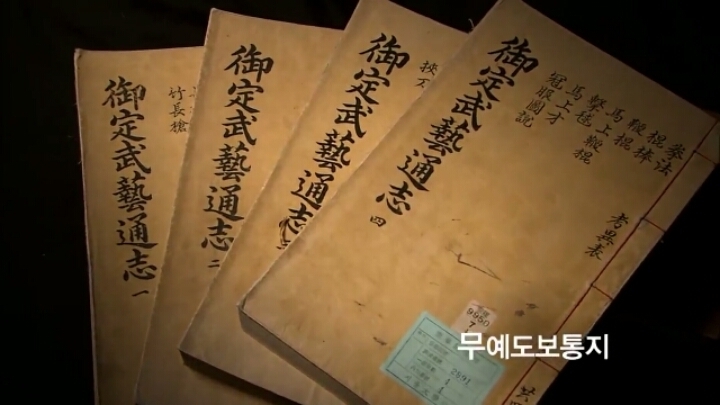 御定武藝通志 一
竹長槍
御定武藝通志 二
御定武藝通志
御定武藝通志 四
拳法
棍棒
鞭棍
馬上鞭棍
擊毬
馬上才
冠服圖說
考異表
9950
7
2591
무예도보통지